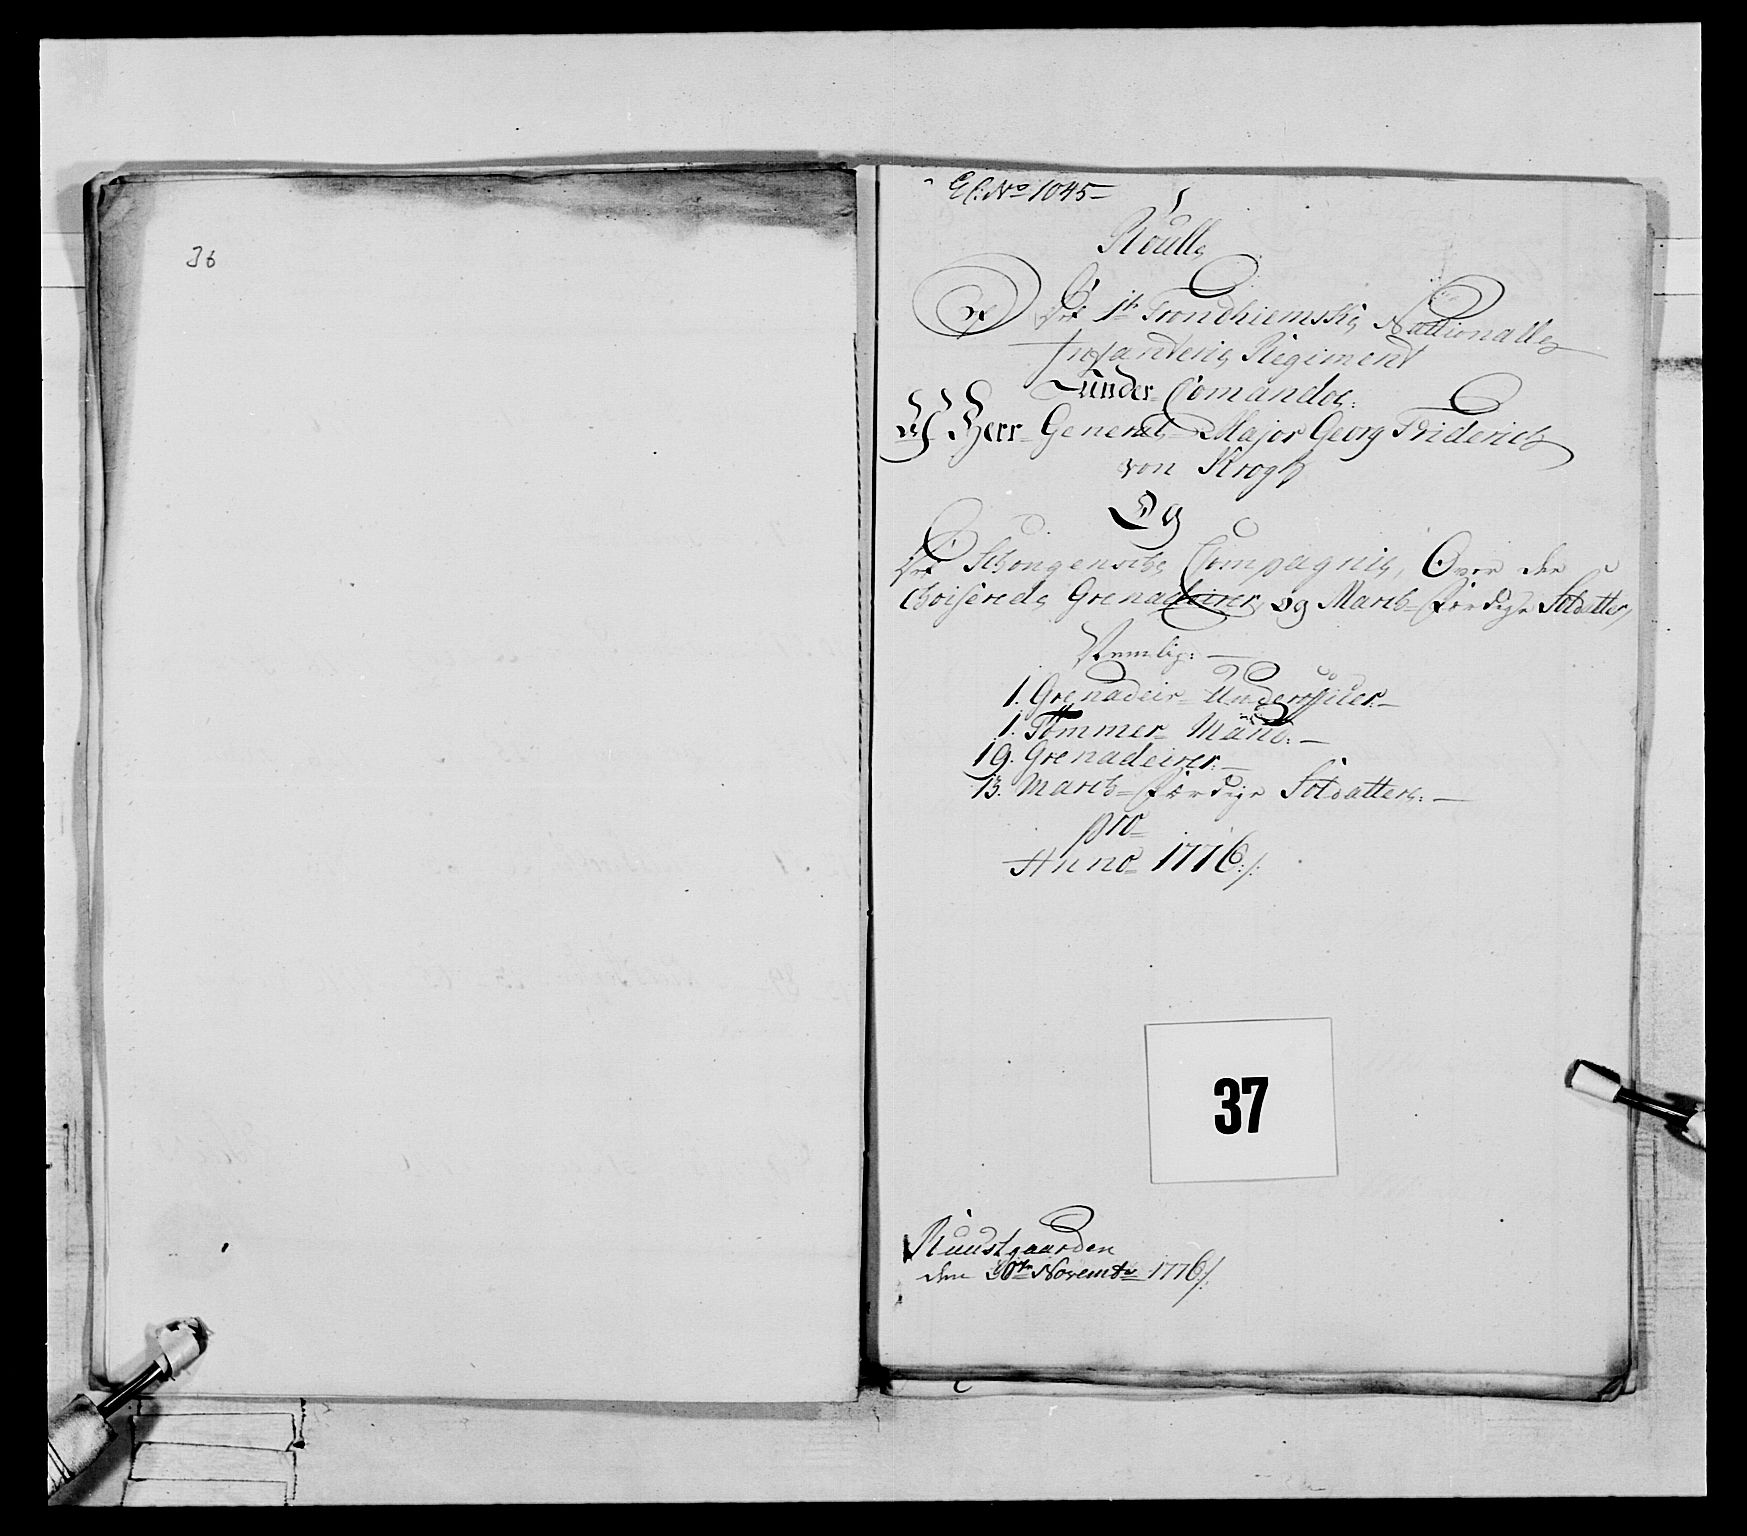 36
No 1045
Roulle
Af Det 1te Trondhiemske Nattionalle
Infanterie Regiment
under Comando
Af Herr General Major Georg Friderich
von Krogh
Og
Det Schougensche Compagnie, Over der
Choiserede Grenadeirer og March-færdige Soldatter,
Nemlig:
1. Grenadeir Underofficer
1. Tømmer Mand:
19. Grenadeirer:
13. March færdige Soldatter:
pro
Anno 1776
37
Ruustgaarden
den 30te Novembr 1776